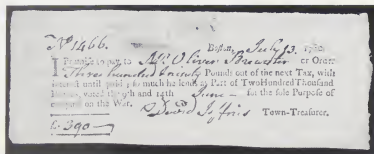 No. 1466. Boston, July 13. 178
I Promise to pay to Mr. Oliver Brewster or Order
Three hundred & ninety Pounds out of the next Tax, with
Interest until paid, so much he lent as Part of Two Hundred Thousand
Pounds, voted the 9th and 14th June for the sole Purpose of
carrying on the War.
David Jeffries Town-Treasurer.
£. 390